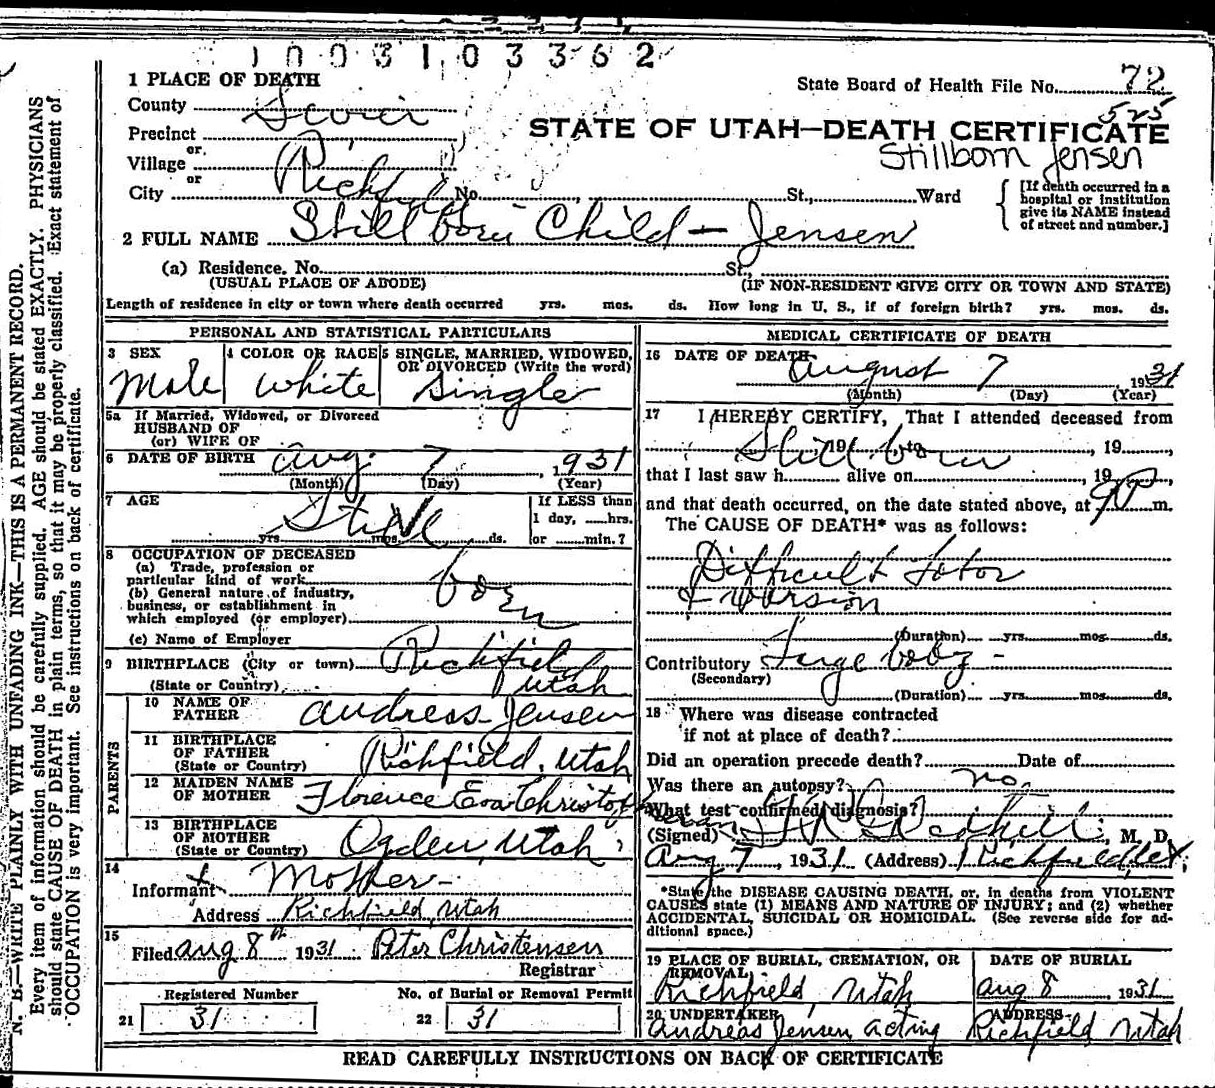 1003103362
1 PLACE OF DEATH
State Board of Health File No. 72
525
County Sevier
STATE OF UTAH—DEATH CERTIFICATE
Stillborn Jensen
Precinct
or
Village
or
City Richfield No. St., Ward
[If death occurred in a
hospital or institution
give its NAME instead
of street and number.]
2 FULL NAME Stillborn Child - Jensen
(a) Residence. No. St.,
(USUAL PLACE OF ABODE) (IF NON-RESIDENT GIVE CITY OR TOWN AND STATE)
Length of residence in city or town where death occurred yrs. mos. ds. How long in U. S., if of foreign birth? yrs. mos. ds.
PERSONAL AND STATISTICAL PARTICULARS
3 SEX Male
4 COLOR OR RACE white
5 SINGLE, MARRIED, WIDOWED,
OR DIVORCED (Write the word)
Single
5a If Married, Widowed, or Divorced
HUSBAND OF
(or) WIFE OF
6 DATE OF BIRTH Aug. 7, 1931
(Month) (Day) (Year)
7 AGE Still
yrs. mos. ds.
If LESS than
1 day, hrs.
or min.?
8 OCCUPATION OF DECEASED
(a) Trade, profession or
particular kind of work
born
(b) General nature of industry,
business, or establishment in
which employed (or employer)
(c) Name of Employer
9 BIRTHPLACE (City or town) Richfield
(State or Country) Utah
PARENTS
10 NAME OF
FATHER Andreas Jensen
11 BIRTHPLACE
OF FATHER
(State or Country) Richfield, Utah
12 MAIDEN NAME
OF MOTHER Florence Eva
13 BIRTHPLACE
OF MOTHER
(State or Country) Ogden, Utah
14
Informant Mother -
Address Richfield, Utah
15
Filed Aug 8th 1931 Peter Christensen
Registrar
Registered Number
21 31
No. of Burial or Removal Permit
22 31
MEDICAL CERTIFICATE OF DEATH
16 DATE OF DEATH August 7, 1931
(Month) (Day) (Year)
17 I HEREBY CERTIFY, That I attended deceased from
Still born, 19 to , 19
that I last saw h alive on , 19
and that death occurred, on the date stated above, at m.
The CAUSE OF DEATH* was as follows:
Difficult
& Version
(Duration) yrs. mos. ds.
Contributory Large body -
(Secondary)
(Duration) yrs. mos. ds.
18 Where was disease contracted
if not at place of death?
Did an operation precede death? Date of
Was there an autopsy? no
What test confirmed diagnosis?
(Signed) M. D.
Aug 7, 1931 (Address) Richfield, Ut.
*State the DISEASE CAUSING DEATH, or, in deaths from VIOLENT
CAUSES state (1) MEANS AND NATURE OF INJURY; and (2) whether
ACCIDENTAL, SUICIDAL OR HOMICIDAL. (See reverse side for ad-
ditional space.)
19 PLACE OF BURIAL, CREMATION, OR
REMOVAL
Richfield, Utah
DATE OF BURIAL
Aug 8, 1931
20 UNDERTAKER
Andreas Jensen acting
ADDRESS
Richfield Utah
READ CAREFULLY INSTRUCTIONS ON BACK OF CERTIFICATE
N. B.—WRITE PLAINLY WITH UNFADING INK—THIS IS A PERMANENT RECORD.
Every item of information should be carefully supplied. AGE should be stated EXACTLY. PHYSICIANS
should state CAUSE OF DEATH in plain terms, so that it may be properly classified. Exact statement of
OCCUPATION is very important. See instructions on back of certificate.